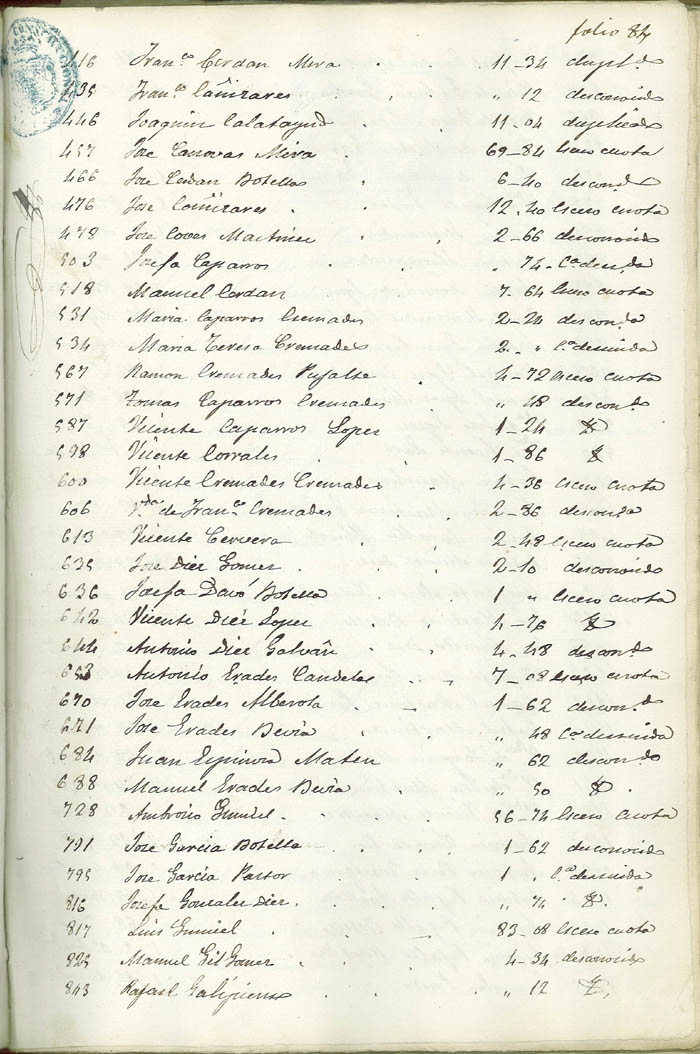 folio 84
416 Fran.co Cerdan Mira 11-34 dupl.do
435 Fran.co Cañizares " 12 desconocido
446 Joaquin Calatayud 11-04 duplicado
457 Jose Canovas Mira 69-84 cuota
466 Jose Cerdan Botella 6-40 descon.do
476 Jose Cañizares 12-40 cuota
478 Jose Coves Martinez 2-66 desconocido
503 Josefa Caparros " 74
518 Manuel Cerdan 7-64 cuota
531 Maria Caparros Cremades 2-24 descon.da
534 Maria Teresa Cremades 2 - "
567 Ramon Cremades Pujalte 4-72 cuota
571 Tomas Caparros Cremades " 48 descon.do
587 Vicente Caparros Lopez 1-24
598 Vicente Corrales 1-86
600 Vicente Cremades Cremades 4-36 cuota
606 V.da de Fran.co Cremades 2-86 descon.da
613 Vicente Cervera 2-48 cuota
635 Jose Diez Gomez 2-10 desconocido
636 Josefa Davó Botella 1 " cuota
642 Vicente Diez Lopez 4-76
644 Antonio Diez Galvañ 4-48 descon.do
653 Antonio Erades Candela 7-08 cuota
670 Jose Erades Alberola 1-62 descon.do
671 Jose Erades Beviá " 48
684 Juan Espinosa Mateu " 62 descon.do
688 Manuel Erades Beviá " 50
728 Ambrosio Gumiel 56-74 cuota
791 Jose Garcia Botella 1-62 desconocido
795 Jose Garcia Pastor 1 "
816 Josefa Gonzalez Diez " 74
817 Luis Gumiel 83-08 cuota
825 Manuel Gil Gomez 4-34 desconocido
843 Rafael Galipienso " 12